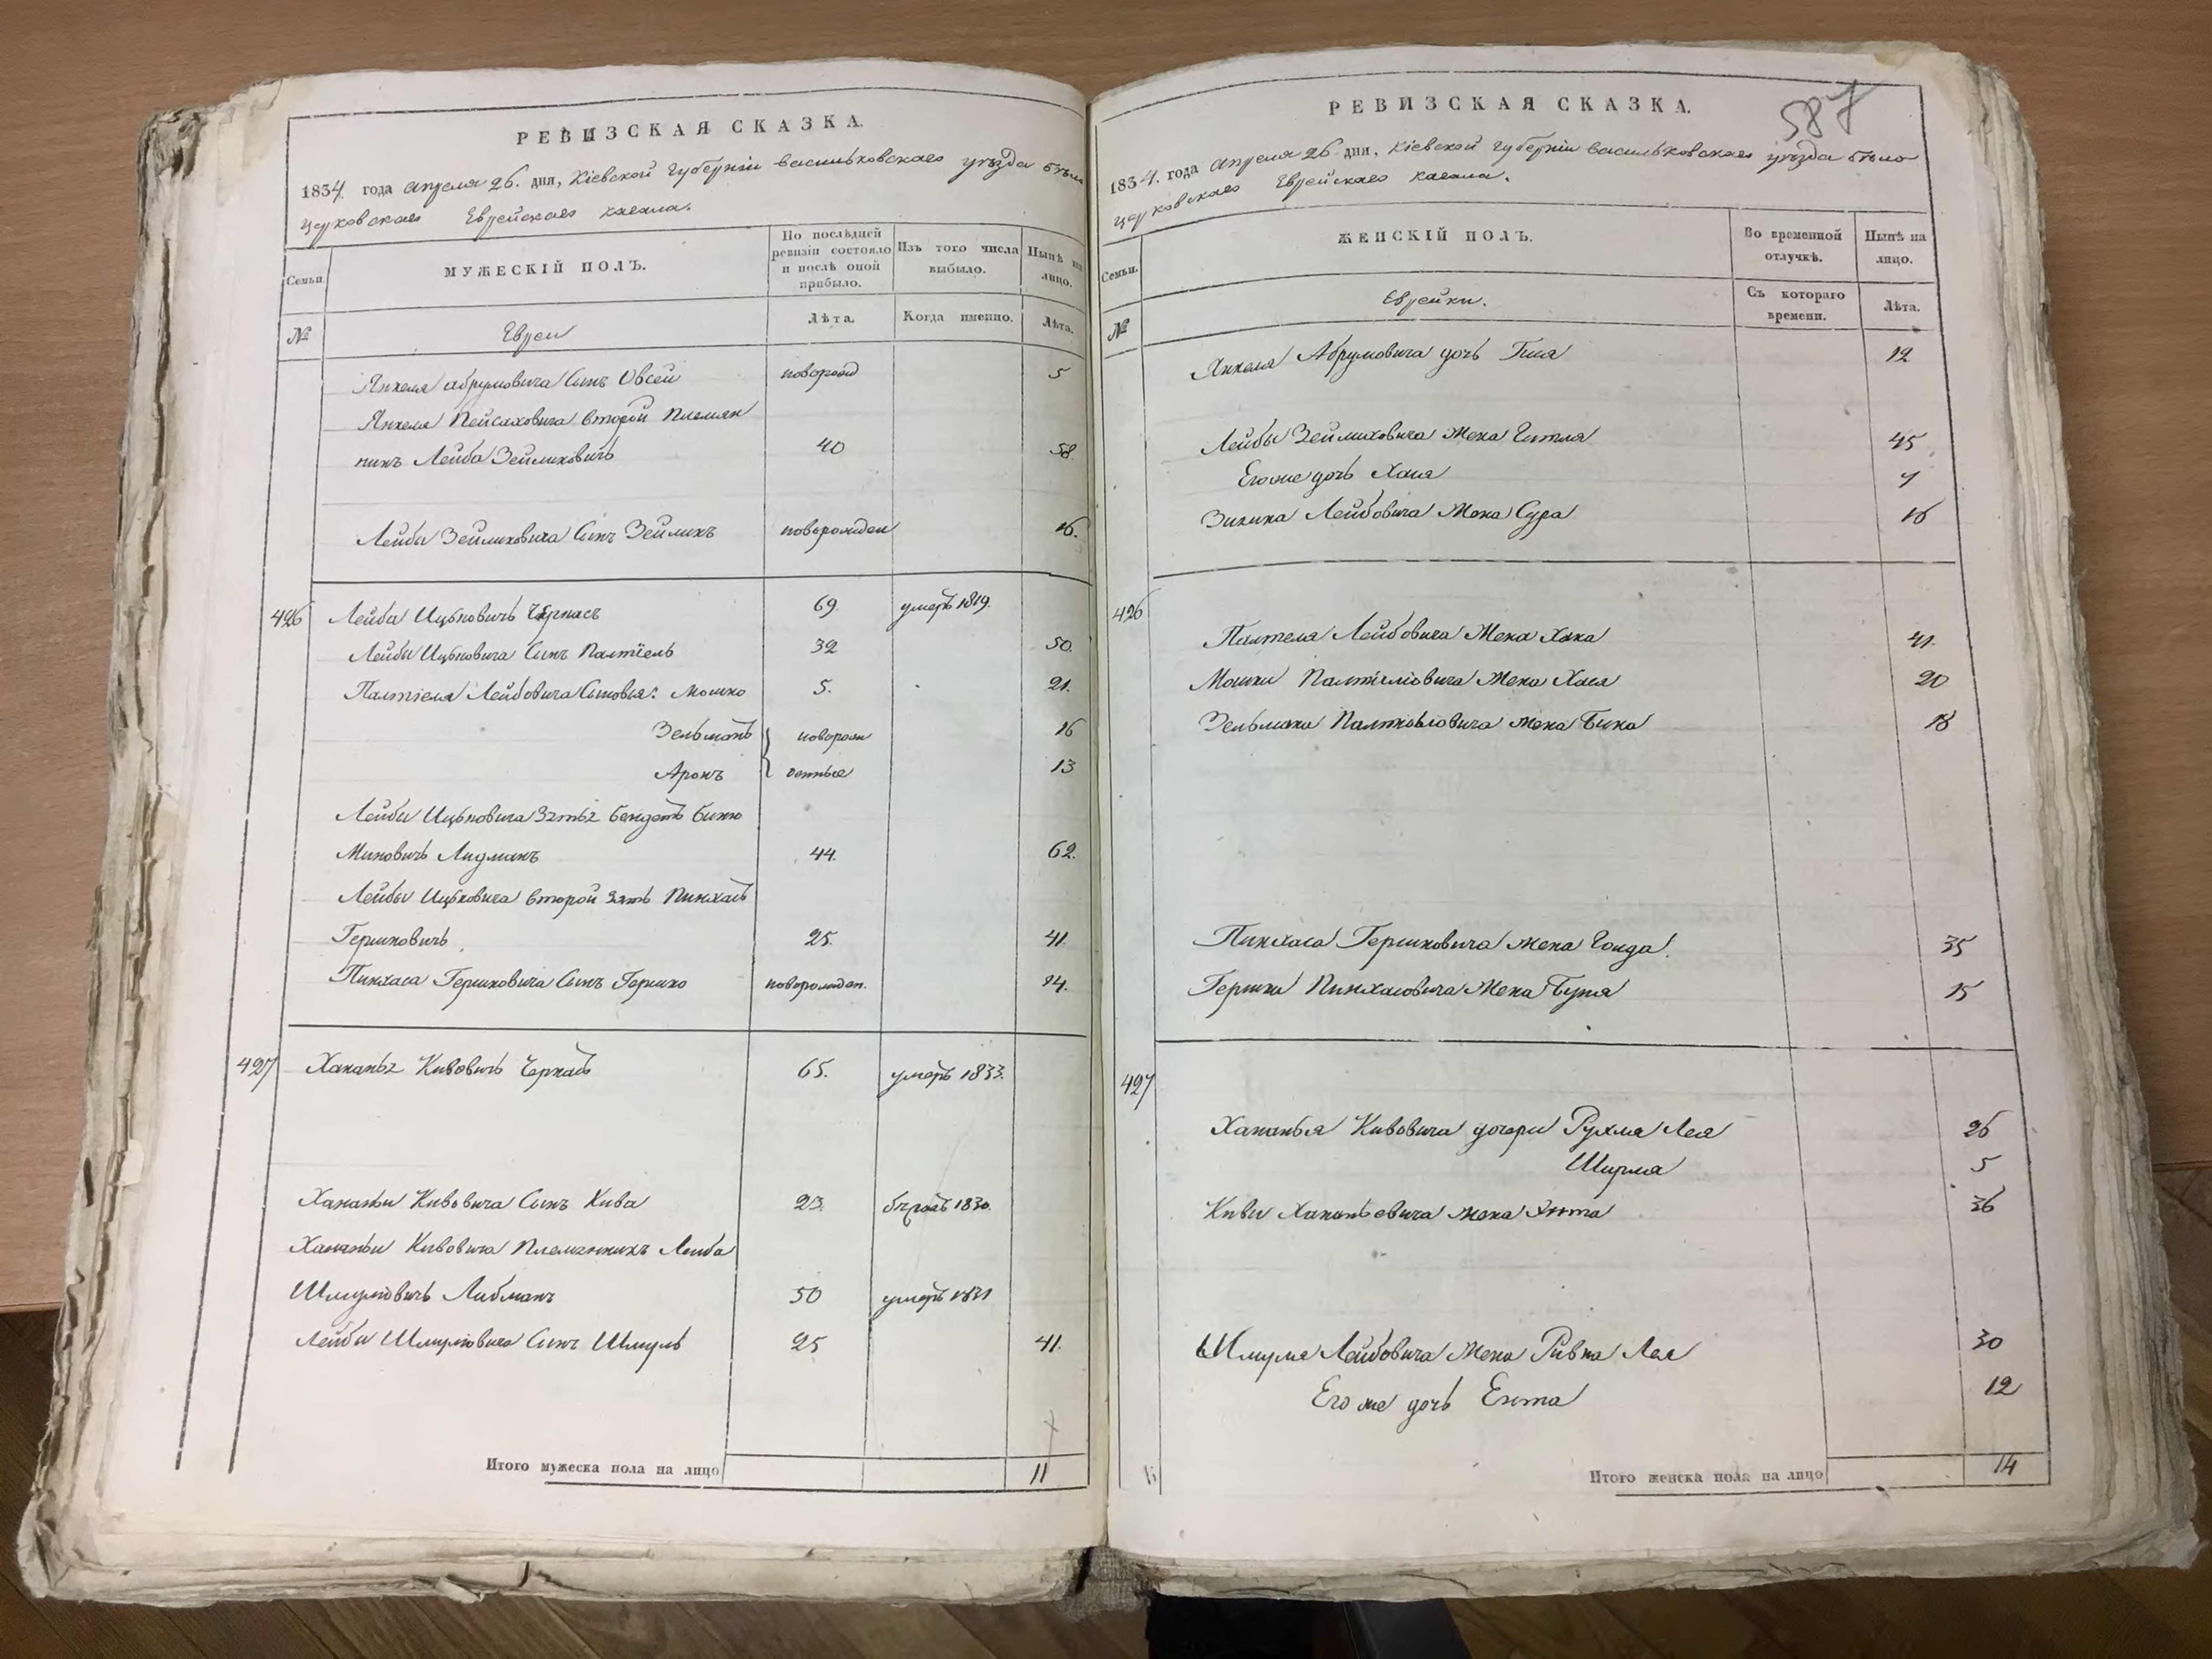 РЕВИЗСКАЯ СКАЗКА.
1834 года апреля 26. дня, Кіевской губерніи васильковскаго уѣзда бѣло
церковскаго Еврейскаго кагала.
Семьи.
МУЖЕСКІЙ ПОЛЪ.
По послѣдней ревизіи состояло и послѣ оной прибыло.
Изъ того числа выбыло.
Нынѣ на лицо.
№
Евреи
Лѣта.
Когда именно.
Лѣта.
Янкеля абрумовича Сынъ Овсей новорожд 5
Янкеля Пейсаховича второй Племян
никъ Лейба Зейликовичъ 40 58.
Лейбы Зейликовича Сынъ Зейликъ новорожден 16.
426 Лейба Ицковичъ Чернасъ 69. умеръ 1819.
Лейбы Ицковича Сынъ Палтіель 32 50.
Палтіеля Лейбовича Сыновья: Мошко 5. 21.
Зельманъ новорож 16
Аронъ денные 13
Лейбы Ицковича Зять
Миновичъ 44. 62.
Лейбы Ицковича второй зять Пинхасъ
Гершковичъ 25. 41.
Пинхаса Гершковича Сынъ Гершко новорожден. 14.
427 Хананья Кивовичъ Чернасъ 65. умеръ 1833.
Хананьи Кивовича Сынъ Кива 23. 1830.
Хананьи Кивовича Племянникъ Лейба
Шмулювичъ Либманъ 50 умеръ 1831
Лейбы Шмулювича Сынъ Шмуль 25 41.
Итого мужеска пола на лицо 11
РЕВИЗСКАЯ СКАЗКА.
587
1834. года апреля 26 дня, Кіевской губерніи васильковскаго уѣзда бѣло
церковскаго Еврейскаго кагала.
Семьи.
ЖЕНСКІЙ ПОЛЪ.
Во временной отлучкѣ.
Нынѣ на лицо.
№
Еврейки.
Съ котораго времени.
Лѣта.
Янкеля Абрумовича дочь 12
Лейбы Зейликовича жена Гитля 45
Его же дочь Хая 7
Лейбовича жена Сура 16
426
Палтеля Лейбовича Жена Хана 41.
Мошки Палтіеліовича жена Хая 20
Зельмана жена 18
Пинхаса Гершковича жена 35
Гершки Пинхасовича жена 15
427
Хананья Кивовича дочери Рухля Лея 26
5
Кивы Хананьевича жена Энта 36
Шмуля Лейбовича Жена Ривка Лея 30
Его же дочь Ента 12
Итого женска пола на лицо 14